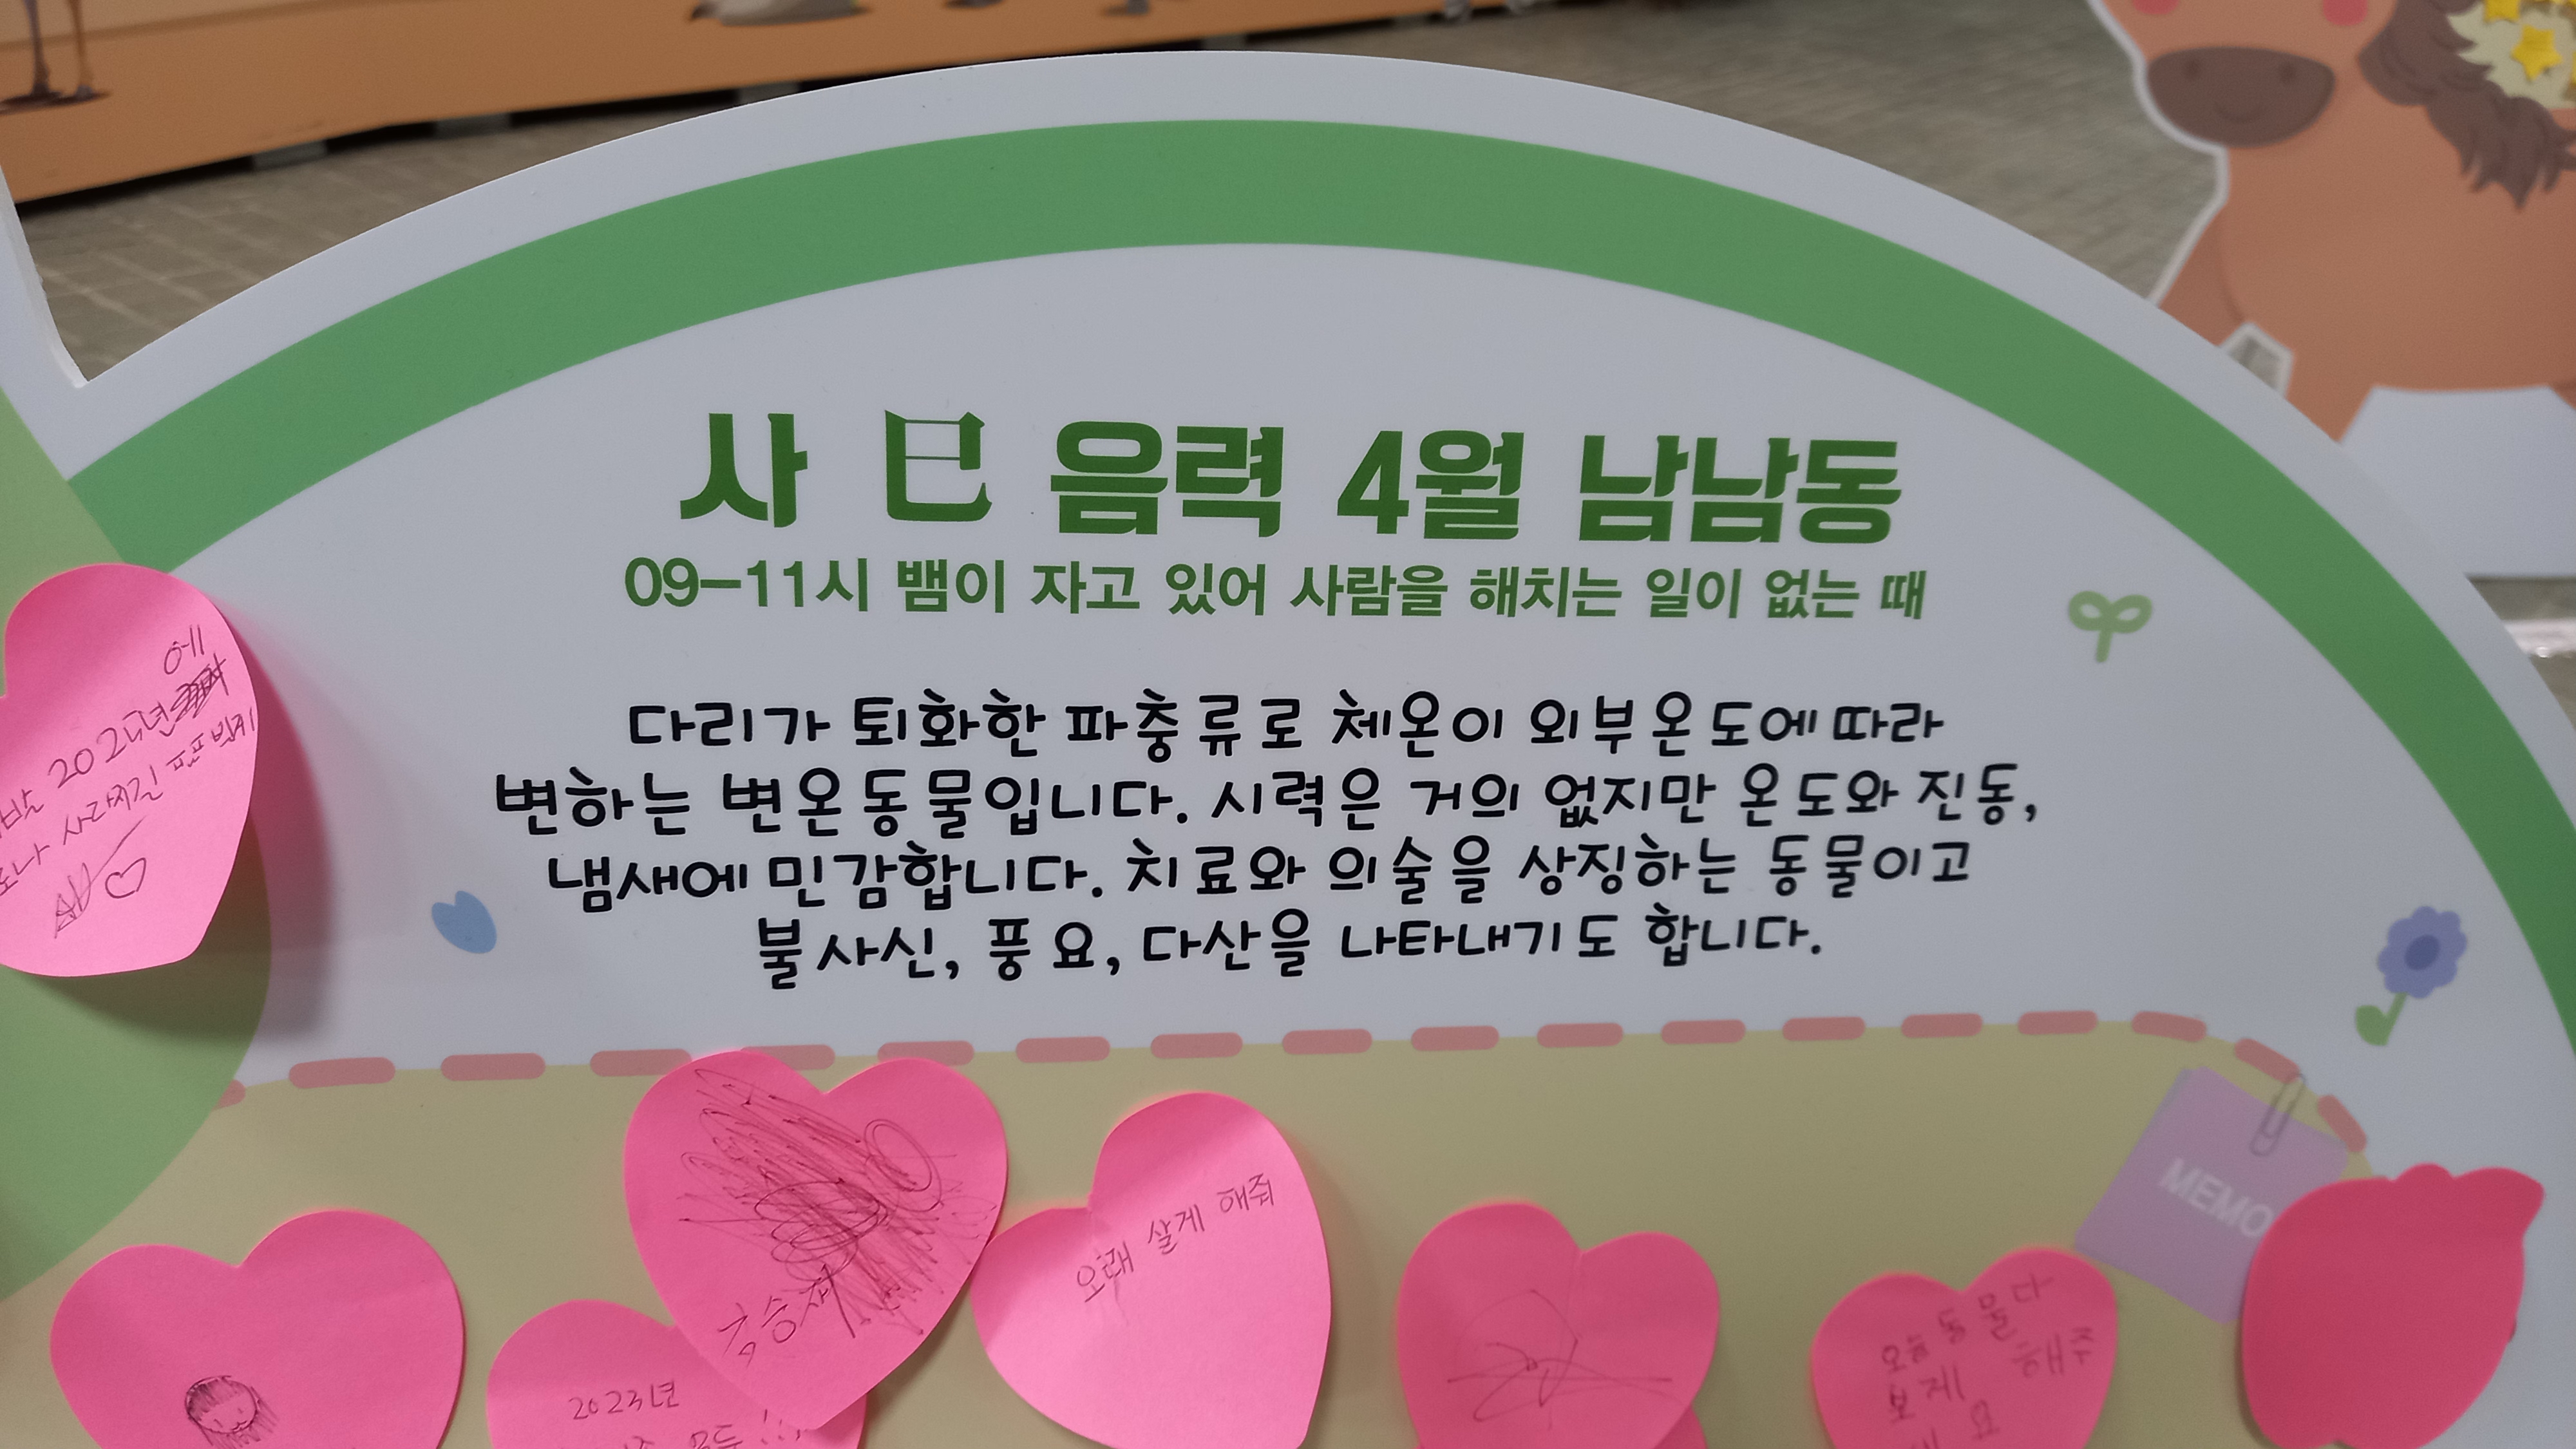 사 巳 음력 4월 남남동
09-11시 뱀이 자고 있어 사람을 해치는 일이 없는 때
다리가 퇴화한 파충류로 체온이 외부온도에 따라
변하는 변온동물입니다. 시력은 거의 없지만 온도와 진동,
냄새에 민감합니다. 치료와 의술을 상징하는 동물이고
불사신, 풍요, 다산을 나타내기도 합니다.
에
2023년
사라지길
MEMO
오래 살게 해줘
2023년